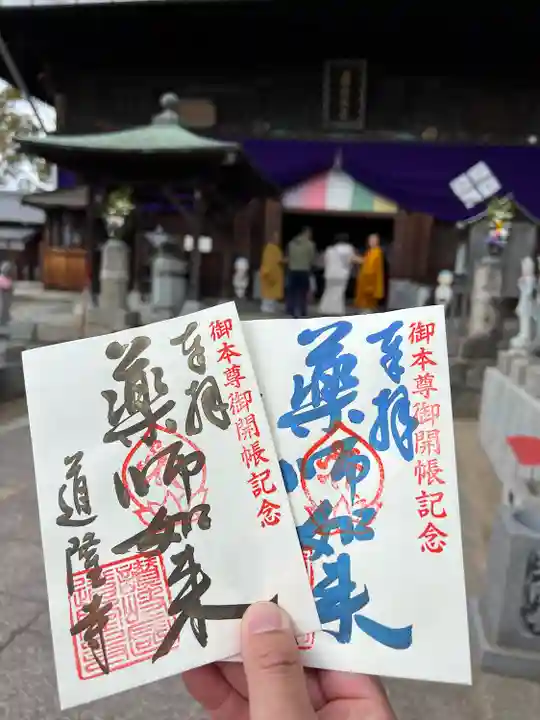 御本尊御開帳記念
奉拝
薬師如来
道隆寺
御本尊御開帳記念
奉拝
薬師如来